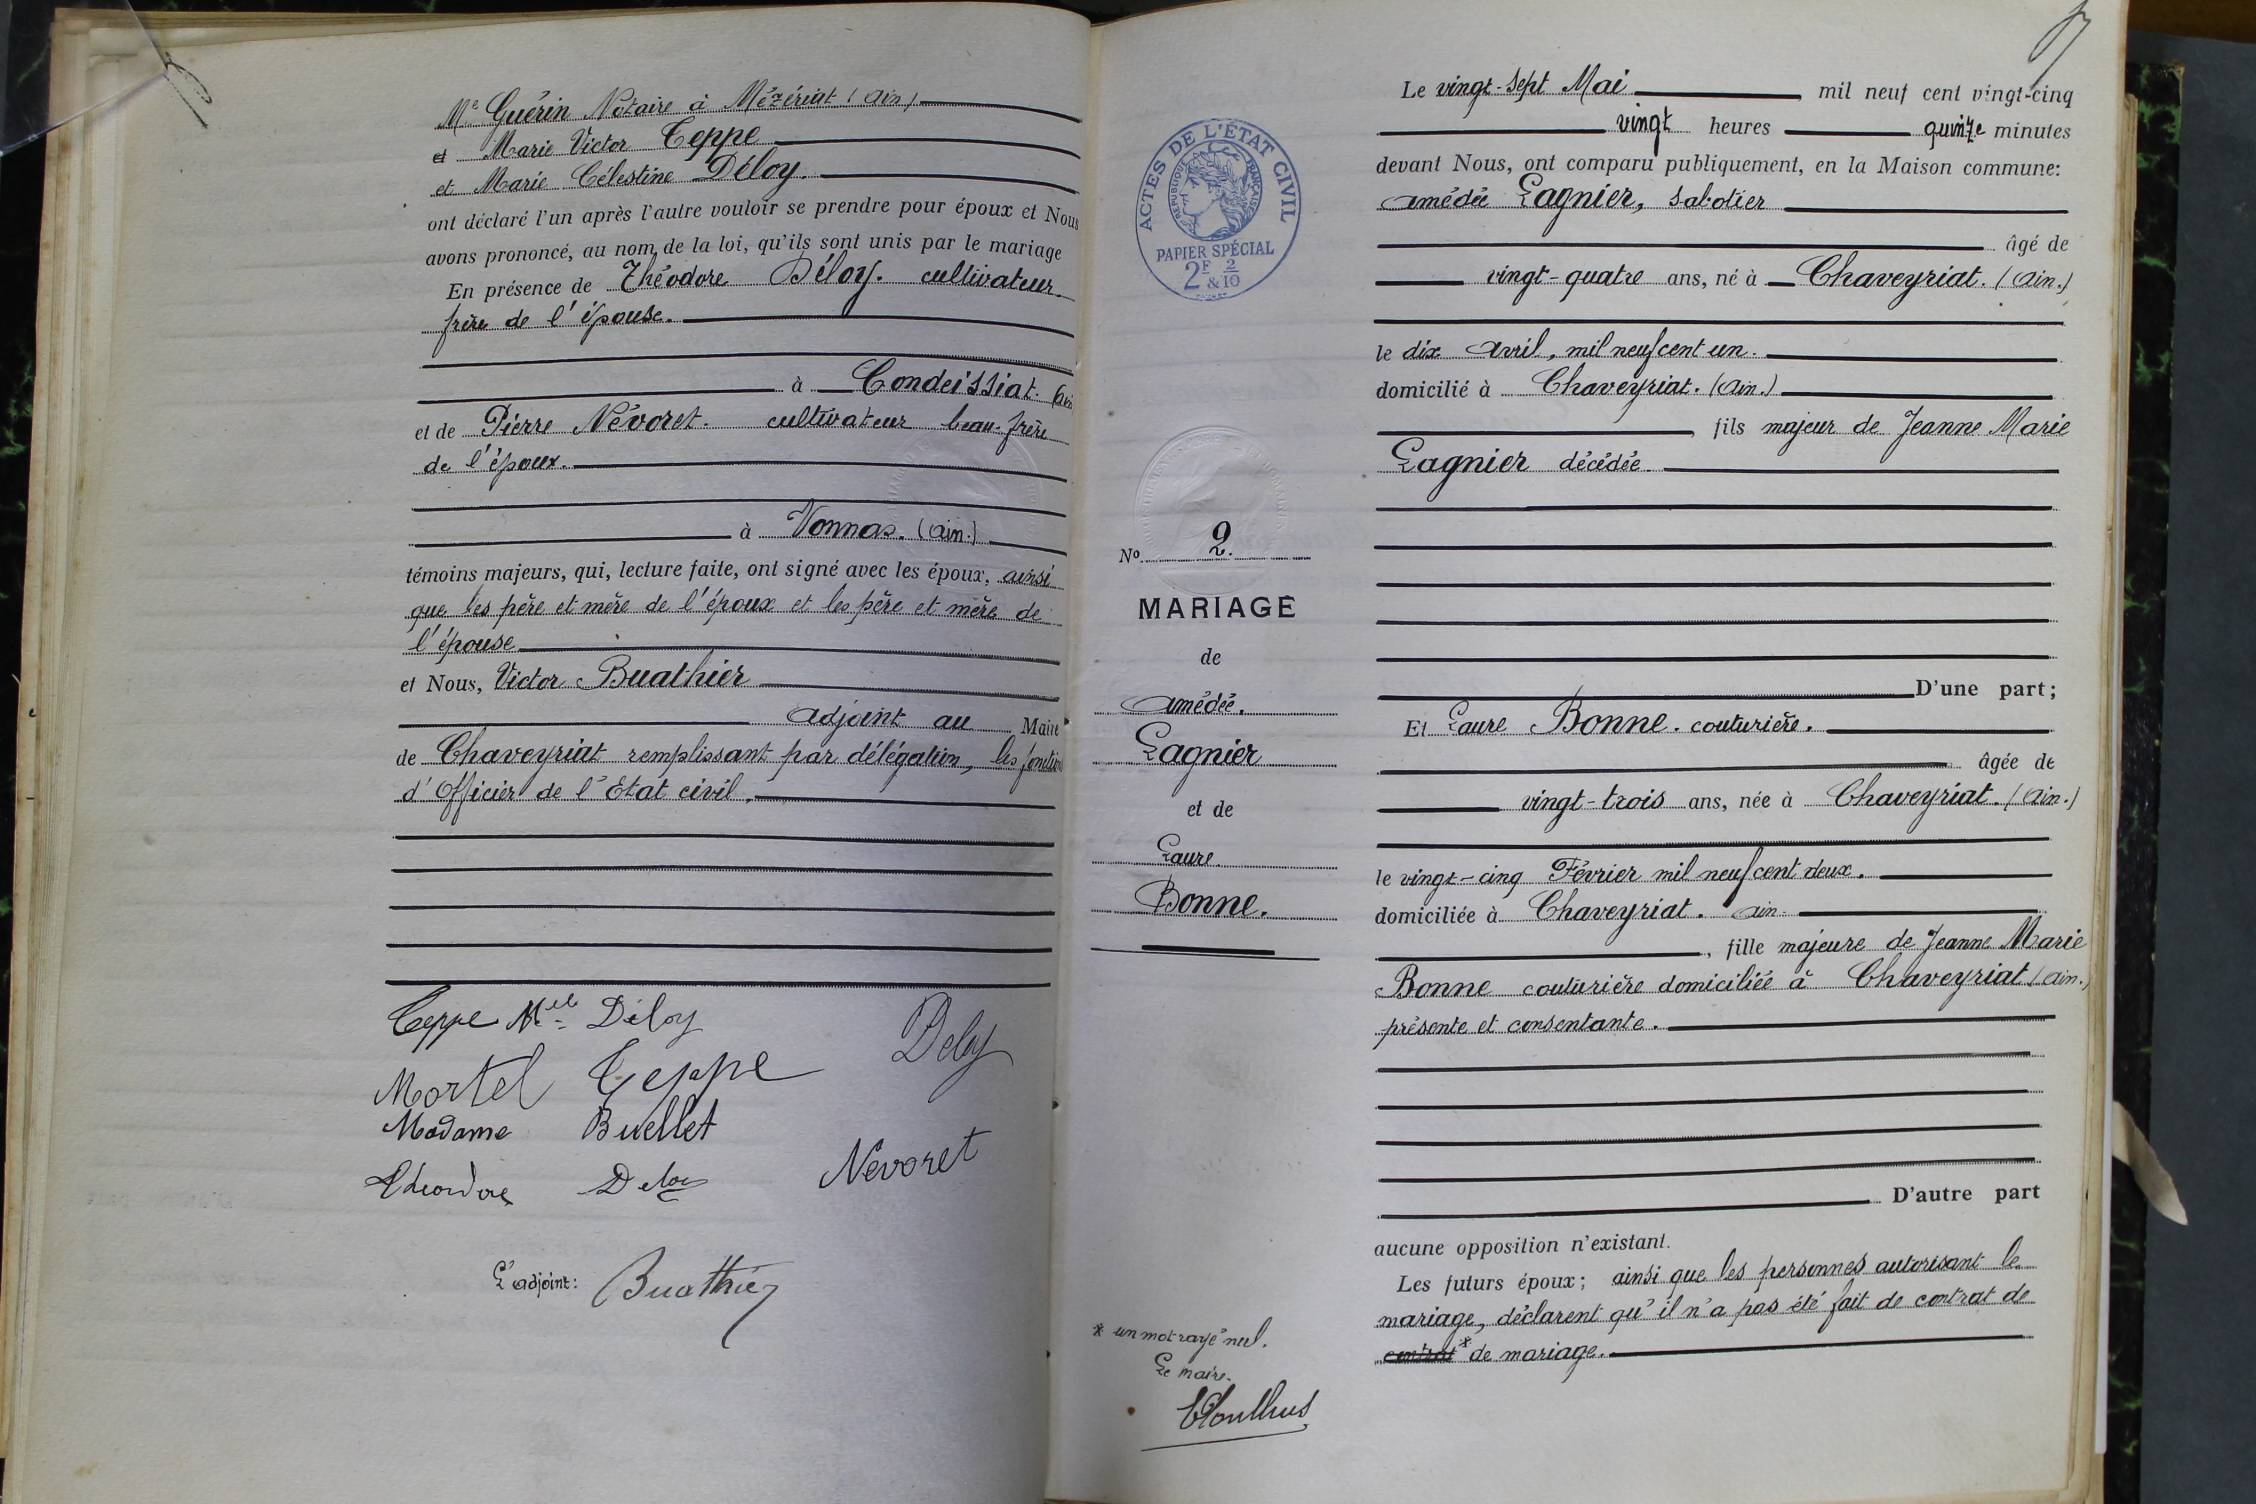 Me Guérin Notaire à Mézériat (Ain)
et Marie Victor Teppe
et Marie Célestine Déloy.
ont déclaré l'un après l'autre vouloir se prendre pour époux et Nous
avons prononcé, au nom de la loi, qu'ils sont unis par le mariage
En présence de Théodore Déloy. cultivateur.
frère de l'épouse.
à Condeissiat. (Ain
et de Pierre Névoret. cultivateur beau-frère
de l'époux.
à Vonnas. (Ain.)
témoins majeurs, qui, lecture faite, ont signé avec les époux, ainsi
que les père et mère de l'époux et les père et mère de
l'épouse
et Nous, Victor Buathier
adjoint au Maire
de Chaveyriat remplissant par délégation, les fonctions
d'Officier de l'Etat civil.
Teppe Mlle Déloy
Deloy
Mortel Teppe
Madame Buellet
Nevoret
Théodore Deloy
L'adjoint: Buathier
ACTES DE L'ÉTAT CIVIL
RÉPUBLIQUE FRANÇAISE
PAPIER SPÉCIAL
2F 2
& 10
No 2.
MARIAGE
de
Amédée.
Gagnier
et de
Laure.
Bonne.
* un mot rayé nul.
Le maire.
Le vingt-sept Mai mil neuf cent vingt-cinq
vingt heures quinze minutes
devant Nous, ont comparu publiquement, en la Maison commune:
Amédée Gagnier, sabotier
âgé de
vingt-quatre ans, né à Chaveyriat. (Ain.)
le dix Avril, mil neuf cent un.
domicilié à Chaveyriat. (Ain.)
, fils majeur de Jeanne Marie
Gagnier décédée
D'une part;
Et Laure Bonne. couturière.
âgée de
vingt-trois ans, née à Chaveyriat. (Ain.)
le vingt-cinq Février mil neuf cent deux.
domiciliée à Chaveyriat. Ain
, fille majeure de Jeanne Marie
Bonne couturière domiciliée à Chaveyriat (Ain.)
présente et consentante.
D'autre part
aucune opposition n'existant.
Les futurs époux; ainsi que les personnes autorisant le
mariage, déclarent qu'il n'a pas été fait de contrat de
contrat * de mariage.